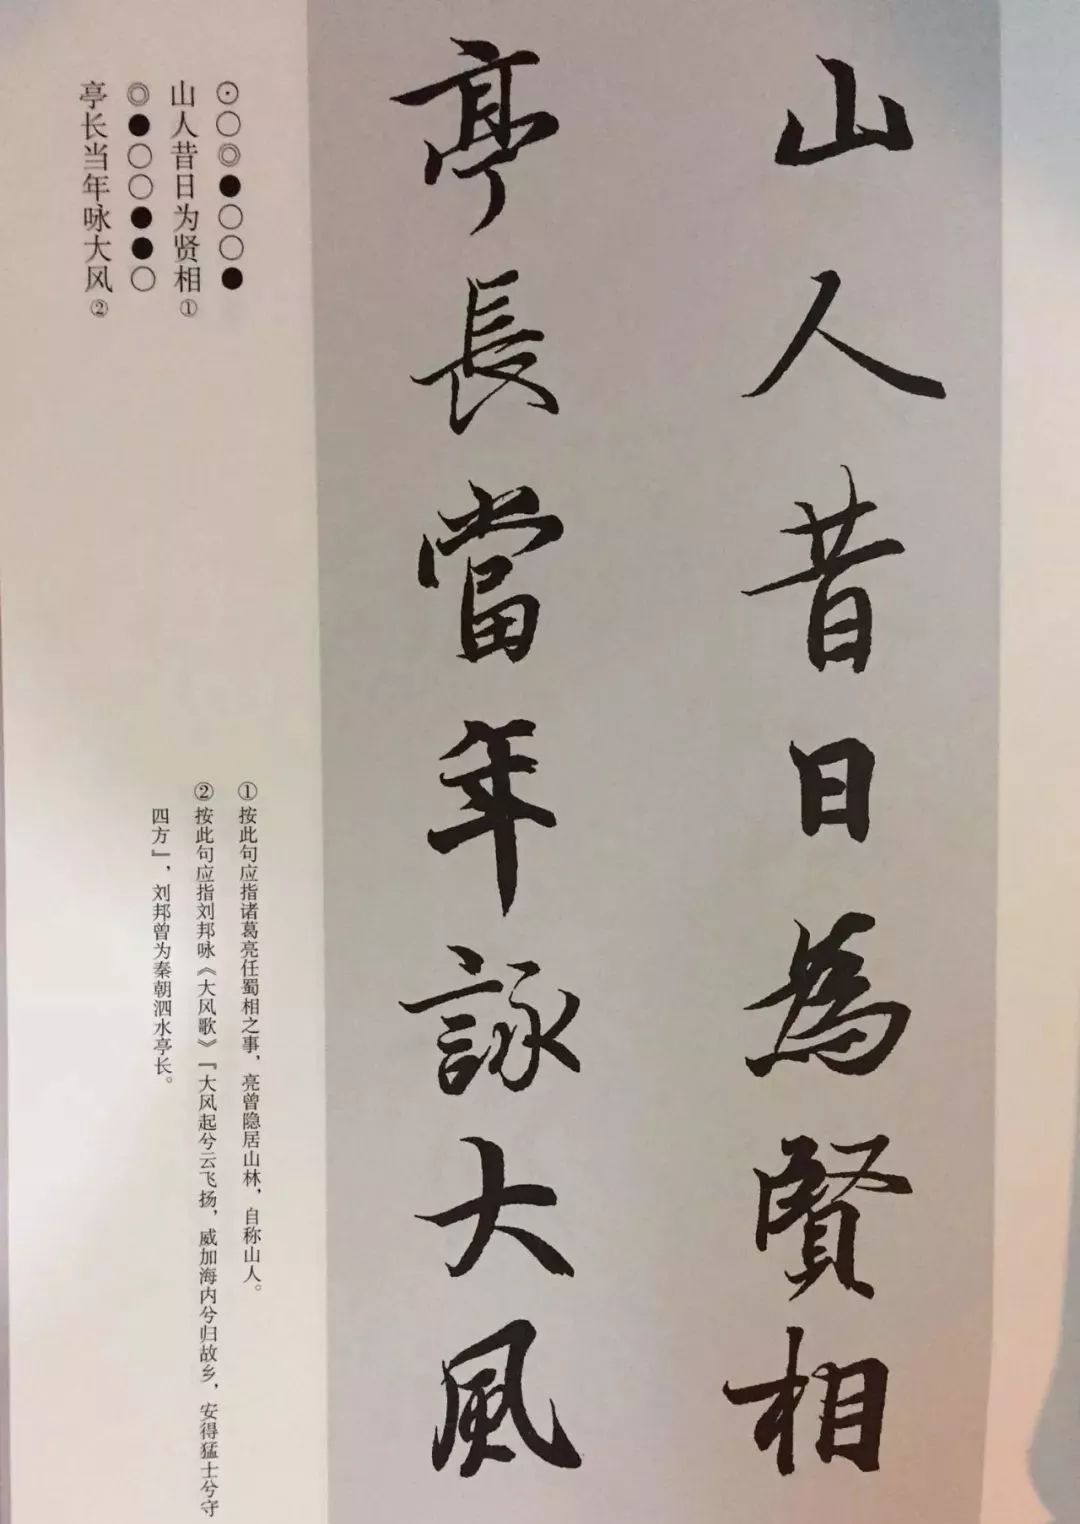 山人昔日為賢相
亭長當年詠大風
⊙○◎●○○●
山人昔日为贤相①
◎●○○●●○
亭长当年咏大风②
①按此句应指诸葛亮任蜀相之事，亮曾隐居山林，自称山人。
②按此句应指刘邦咏《大风歌》『大风起兮云飞扬，威加海内兮归故乡，安得猛士兮守
四方』，刘邦曾为秦朝泗水亭长。